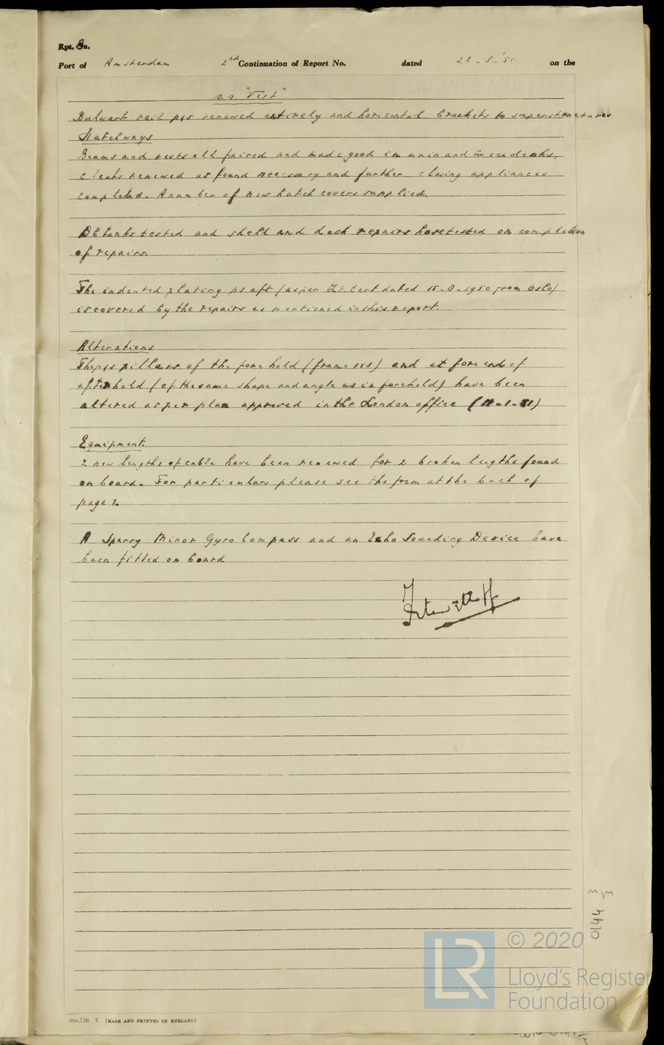 Rpt. 8a.
Port of Amsterdam 2nd Continuation of Report No. dated 22-5-'51 on the
s.s "Vest"
Bulwark rail p&s renewed entirely and horizontal brackets to superstructures
Hatchways
Beams and rests all faired and made good in main and tweendecks,
cleats renewed as found necessary and further closing appliances
completed. A number of new hatch covers supplied.
DB tanks tested and shell and deck repairs hosetested on completion
of repairs.
The indented plating ps aft (as per Int. Cert dated 15-8-1950 from Oslo)
is covered by the repairs as mentioned in this report.
Alterations
The p&s pillars of the fore hold (frame) and at fore end of
afterhold (of the same shape and angle as in forehold) have been
altered as per plan approved in the London office (-1-51)
Equipment.
2 new lengths of cable have been renewed for 2 broken lengths found
on board. For particulars please see the form at the back of
page 7.
A Sperry Minor Gyro Compass and an Echo Sounding Device have
been fitted on board
(MADE AND PRINTED IN ENGLAND)
0144
© 2020
LR
Lloyd's Register
Foundation